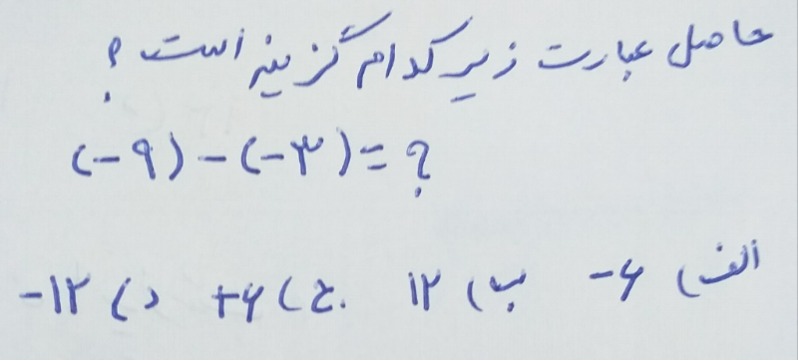 حاصل عبارت زیر کدام گزینه است؟
(-۹) - (-۳) = ?
الف) -۶ ب) ۱۲ ج) +۶ د) -۱۲